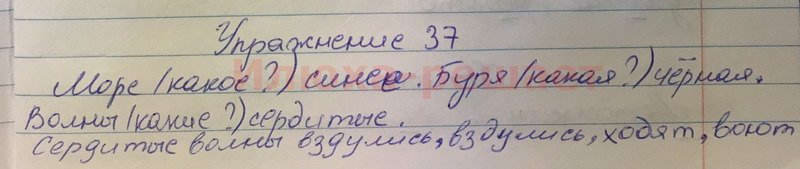 Упражнение 37
Море (какое?) синее. Буря (какая?) чёрная.
Волны (какие?) сердитые.
Сердитые волны вздулись, вздулись, ходят, воют